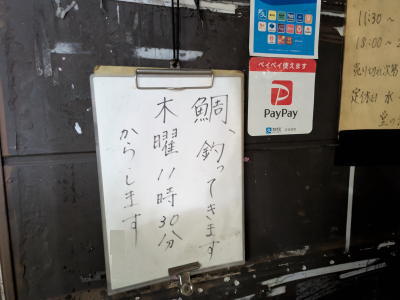 鯛、釣ってきます
木曜11時30分
からします
ペイペイ使えます
PayPay
11:30 ～
18:00 ～
売り切れ次第
定休日 水